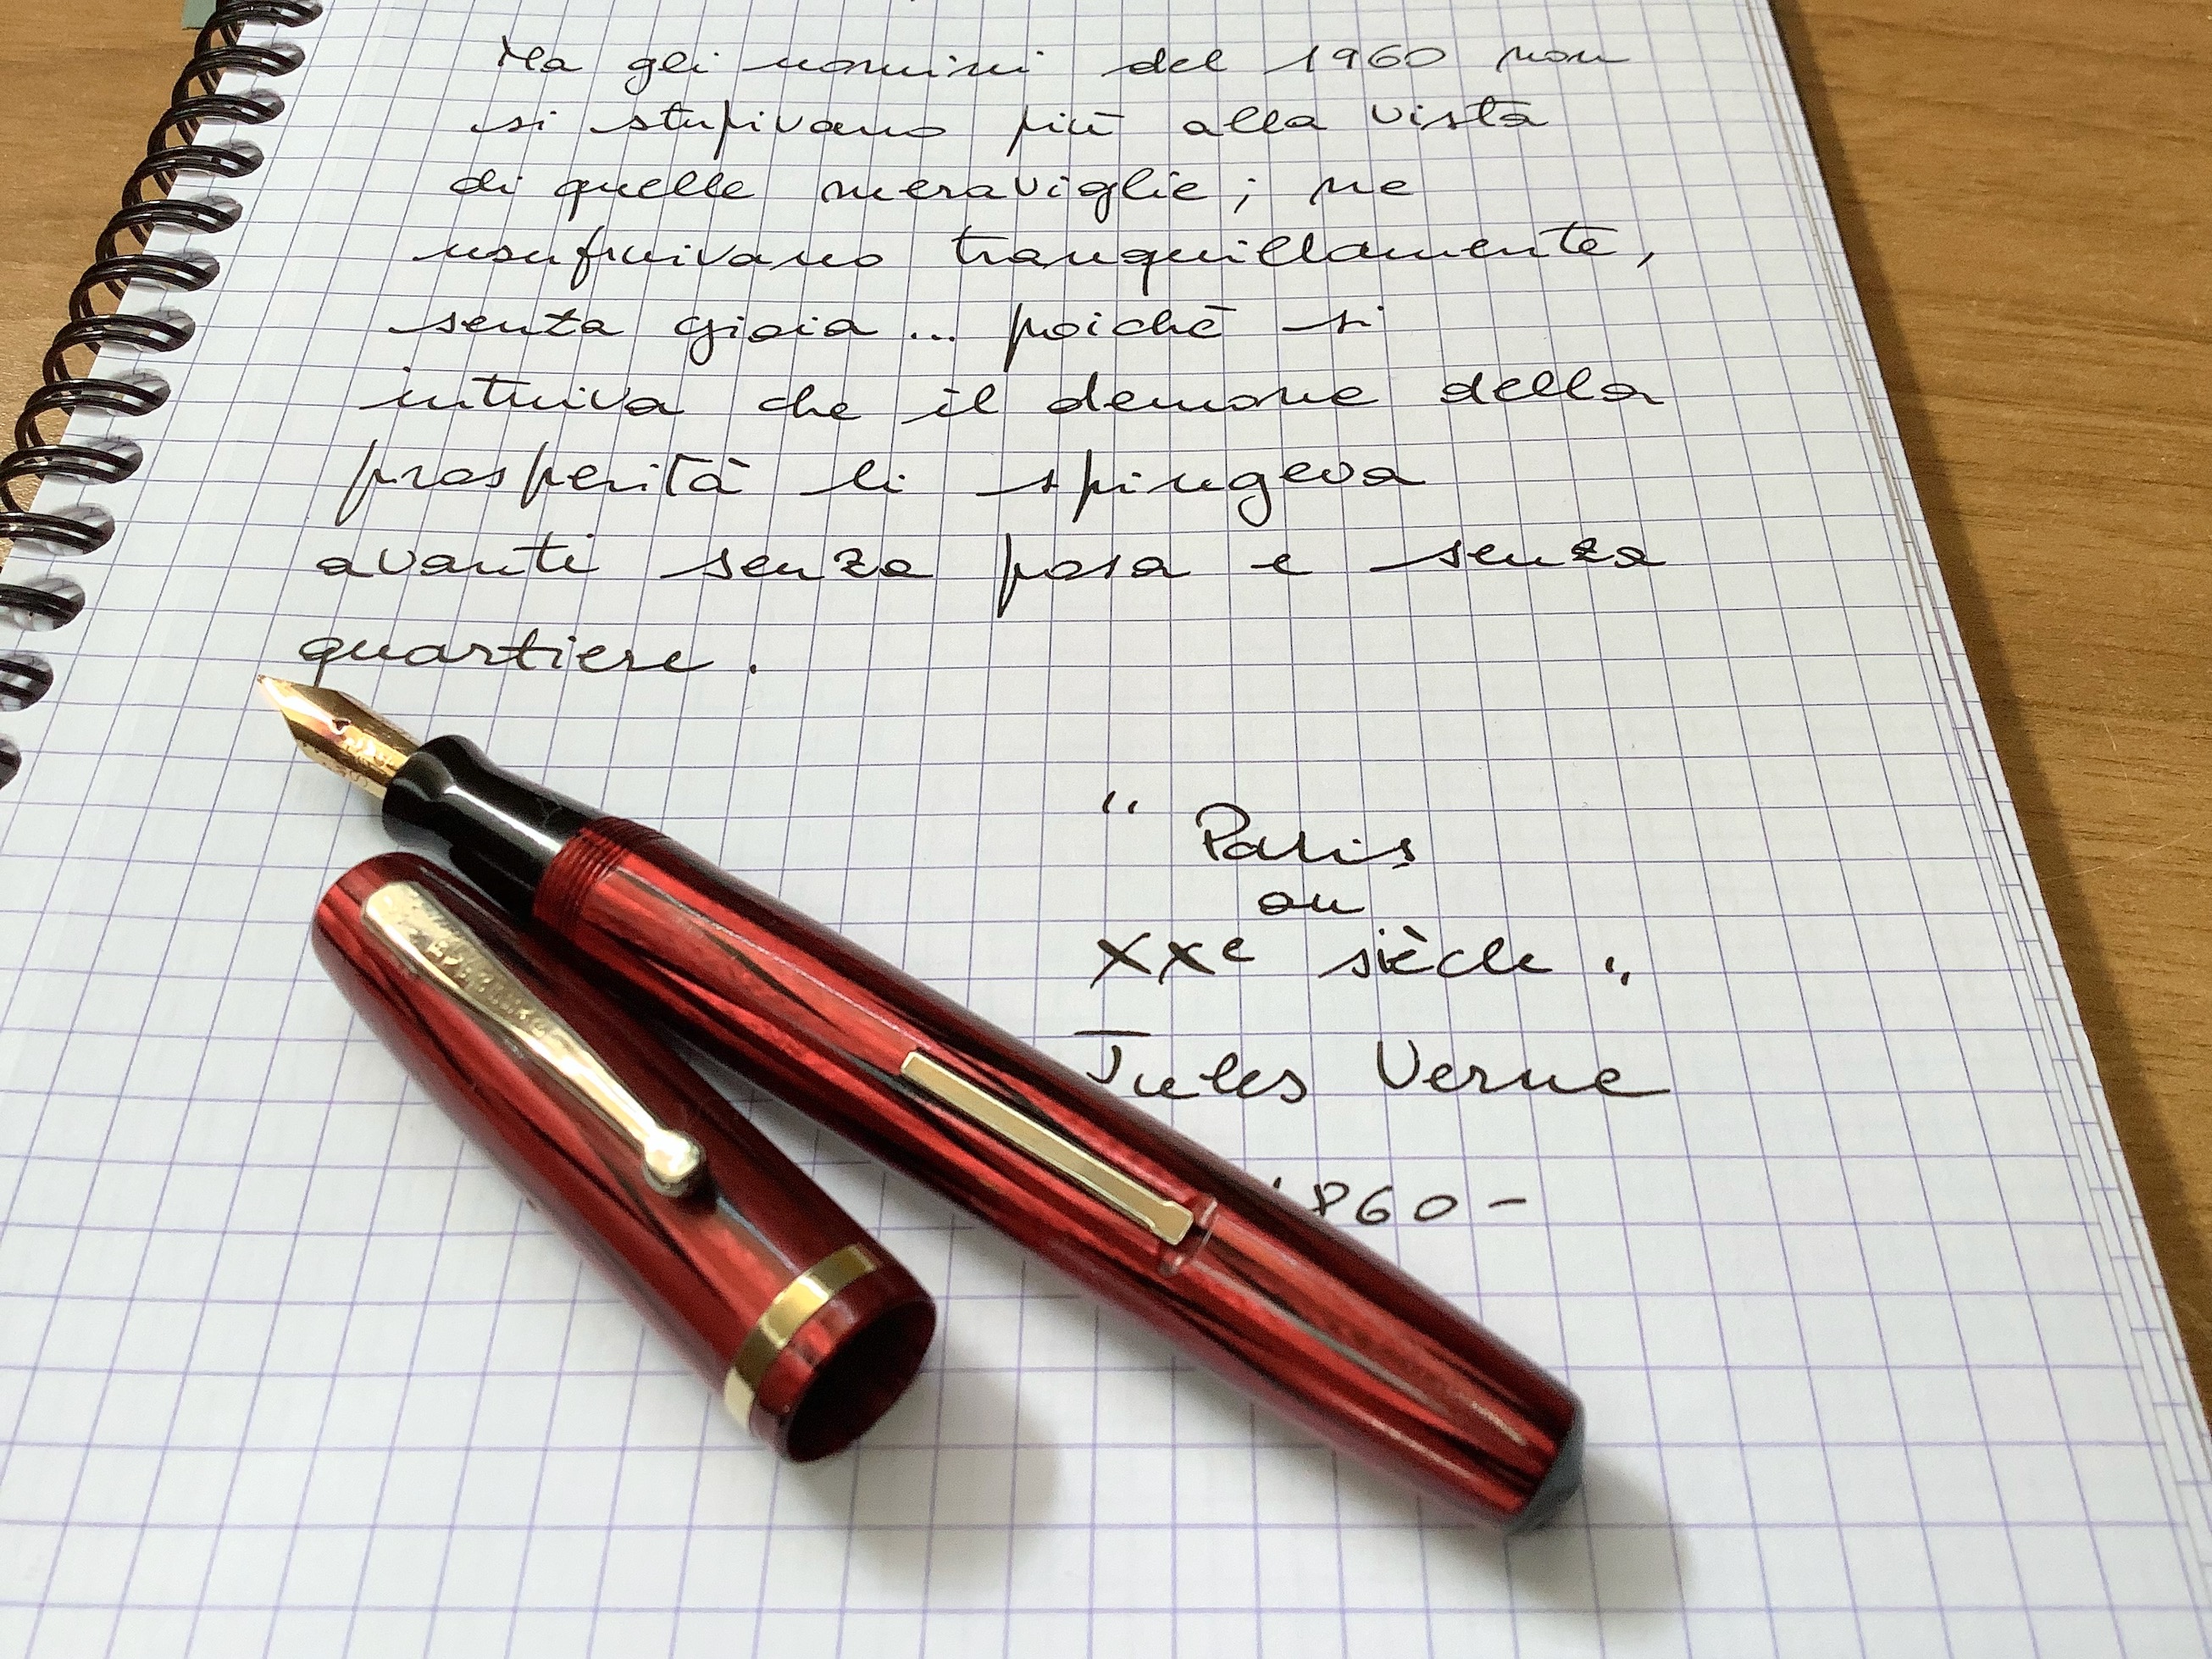 Ma gli uomini del 1960 non
si stupivano più alla vista
di quelle meraviglie; ne
usufruivano tranquillamente,
senza gioia... poiché si
intuiva che il demone della
prosperità li spingeva
avanti senza posa e senza
quartiere.
" Paris
au
XXe siècle "
Jules Verne
1860-